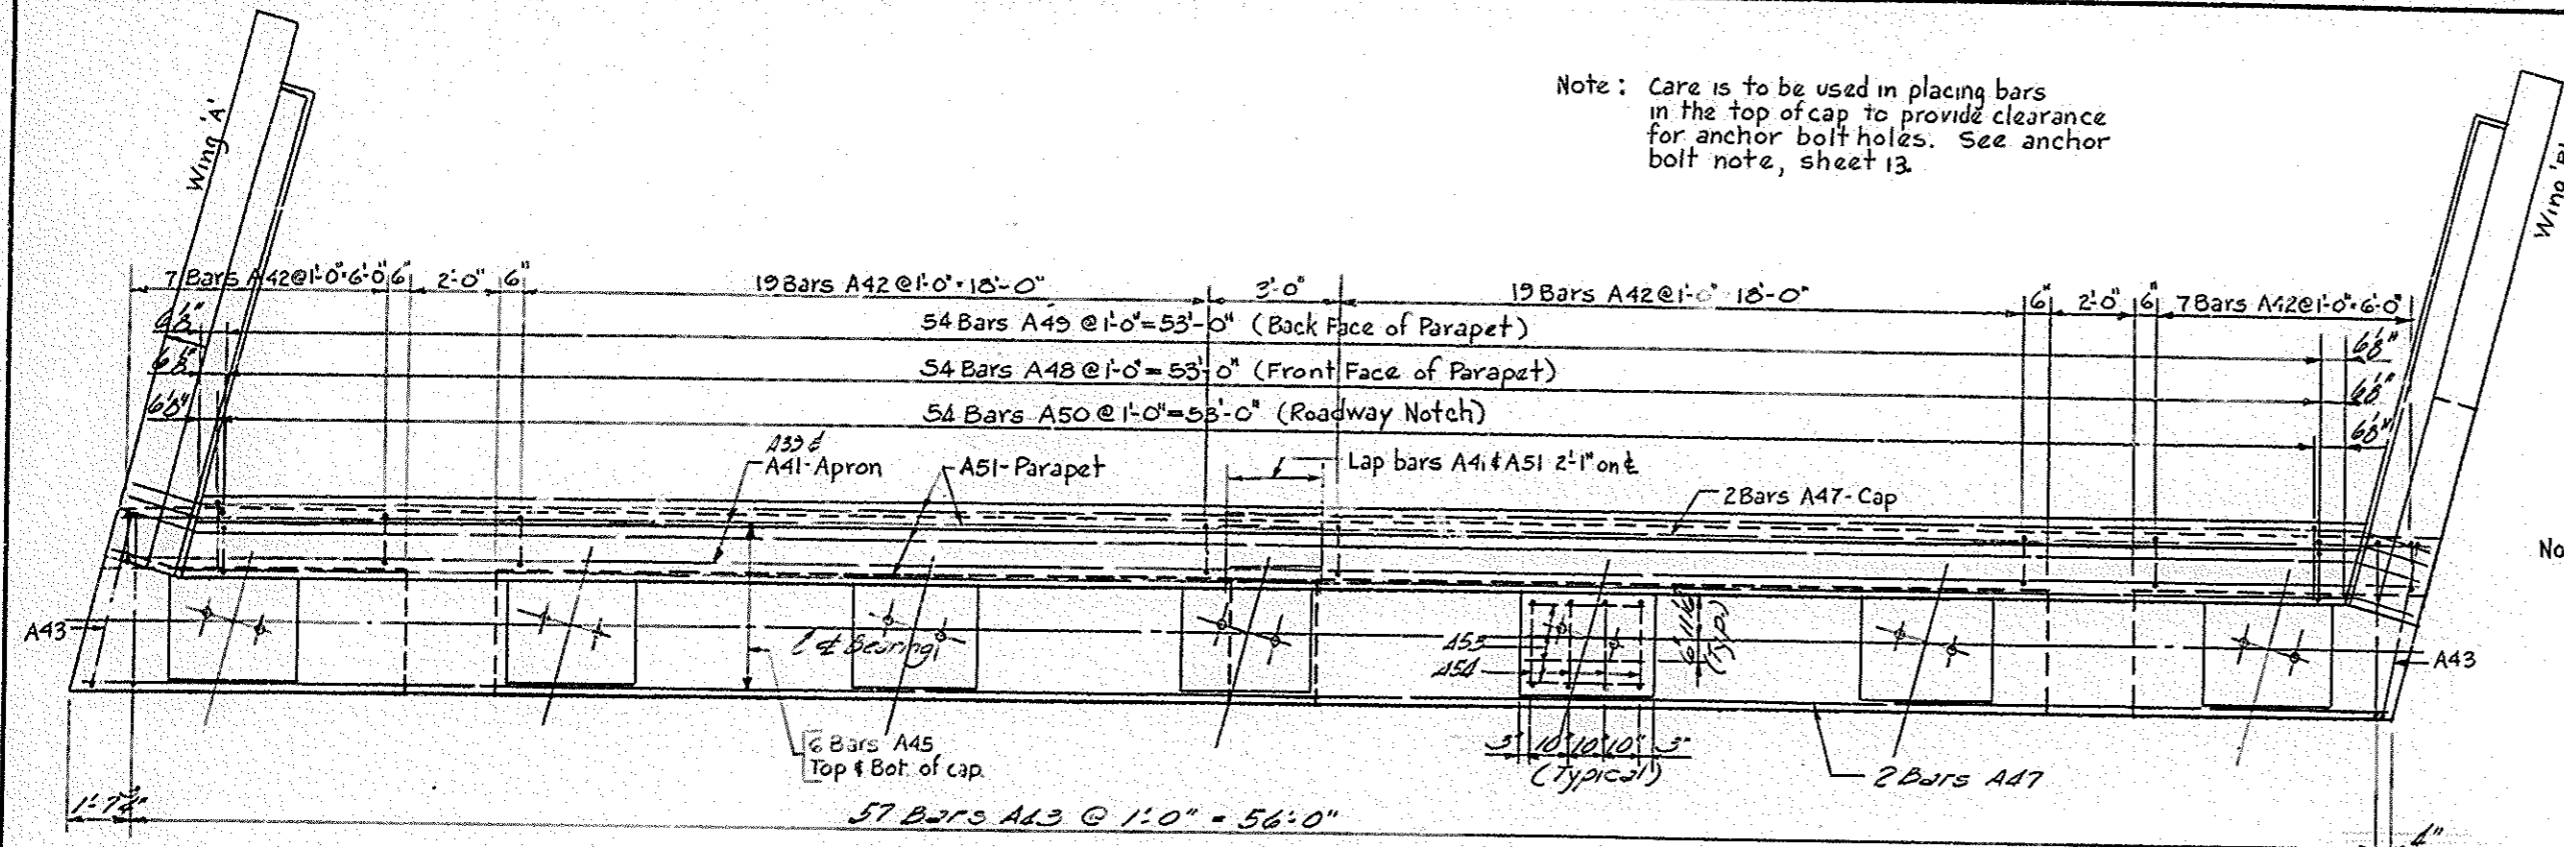 Note: Care is to be used in placing bars
in the top of cap to provide clearance
for anchor bolt holes. See anchor
bolt note, sheet 13.
Wing 'A'
Wing 'B'
7 Bars A42@1'-0"=6'-0" 6" 2'-0" 6" 19 Bars A42 @1'-0"=18'-0" 3'-0" 19 Bars A42@1'-0" 18'-0" 6" 2'-0" 6" 7 Bars A42@1'-0"=6'-0"
54 Bars A49 @1'-0"=53'-0" (Back Face of Parapet)
54 Bars A48 @1'-0"=53'-0" (Front Face of Parapet)
54 Bars A50 @1'-0"=53'-0" (Roadway Notch)
A39 &
A41-Apron
A51-Parapet
Lap bars A41 & A51 2'-1" on ℄
2 Bars A47-Cap
No
A43
℄ of Bearing
A53
A54
(Typ.)
A43
6 Bars A45
Top & Bot. of cap.
3" 10" 10" 10" 3"
(Typical)
2 Bars A47
57 Bars A43 @ 1'-0" = 56'-0"
4"